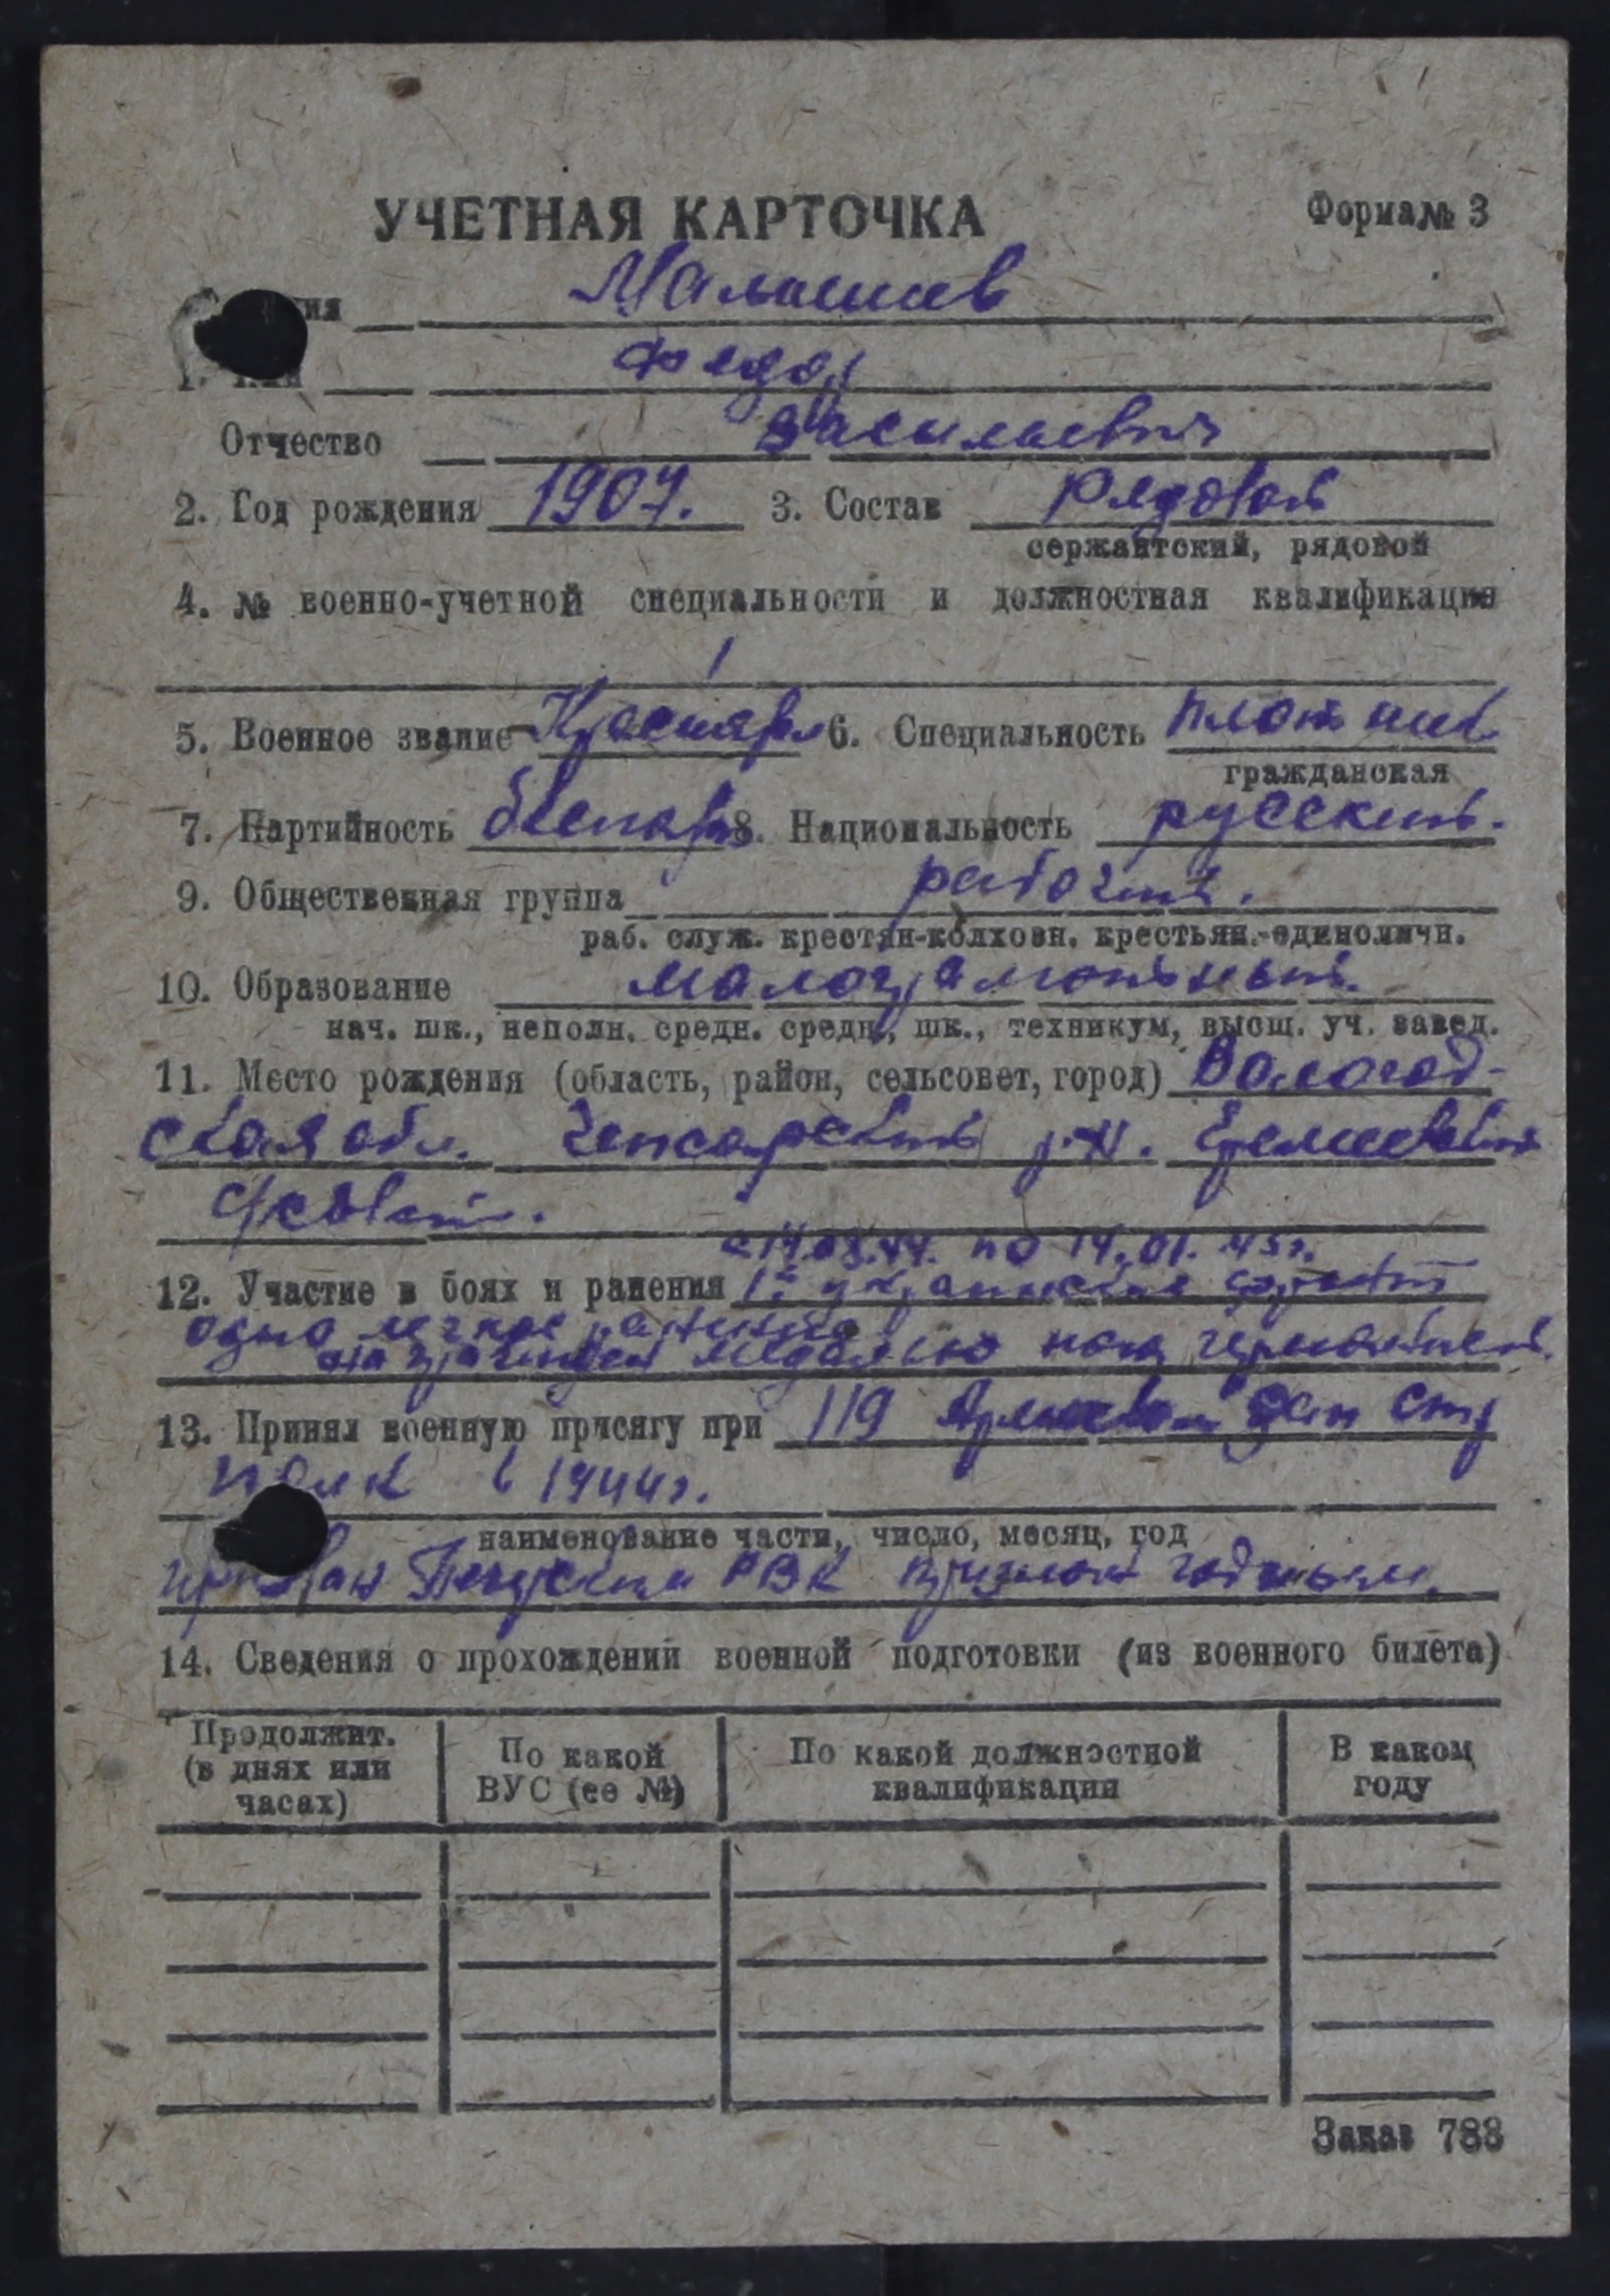 УЧЕТНАЯ КАРТОЧКА Форма № 3
Малышев
1. Имя Федор
Отчество Васильевич
2. Год рождения 1907. 3. Состав Рядовой
сержантский, рядовой
4. № военно-учетной специальности и должностная квалификация
1
5. Военное звание Красноарм 6. Специальность плотник
гражданская
7. Партийность беспарт 8. Национальность русский.
9. Общественная группа рабочий.
раб. служ. крестян-колхозн. крестьян.-единоличн.
10. Образование малограмотный.
нач. шк., неполн. средн. средн., шк., техникум, высш. уч. завед.
11. Место рождения (область, район, сельсовет, город) Вологод-
ская обл. Чепсарский р-н.
с/совет.
с 14.03.44. по 14.01.45г.
12. Участие в боях и ранения 1й украинский фронт
одно легкое ранение
медалью
13. Принял военную присягу при 119 зап стр
полк в 1944г.
наименование части, число, месяц, год
призван РВК признан годным.
14. Сведения о прохождении военной подготовки (из военного билета)
Продолжит. (в днях или часах) По какой ВУС (ее №) По какой должностной квалификации В каком году
Заказ 788